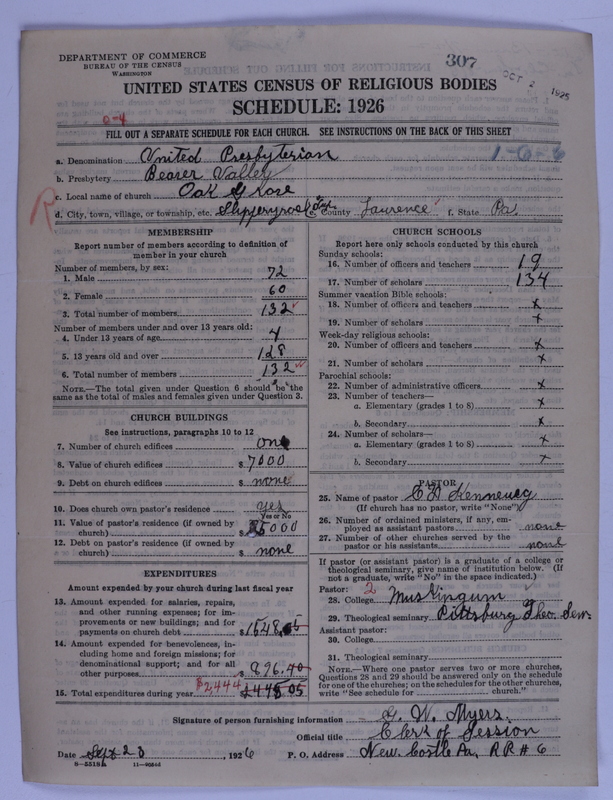 DEPARTMENT OF COMMERCE
BUREAU OF THE CENSUS
WASHINGTON
307
OCT 2 1926
UNITED STATES CENSUS OF RELIGIOUS BODIES
SCHEDULE: 1926
0-4
FILL OUT A SEPARATE SCHEDULE FOR EACH CHURCH. SEE INSTRUCTIONS ON THE BACK OF THIS SHEET
a. Denomination United Presbyterian 1-0-
b. Presbytery Beaver Valley
c. Local name of church Oak Grove
d. City, town, village, or township, etc. Slipperyrock Twp. e. County Lawrence f. State Pa.
MEMBERSHIP
Report number of members according to definition of
member in your church
Number of members, by sex:
1. Male 72
2. Female 60
3. Total number of members 132
Number of members under and over 13 years old:
4. Under 13 years of age 4
5. 13 years old and over 128
6. Total number of members 132
NOTE.—The total given under Question 6 should be the
same as the total of males and females given under Question 3.
CHURCH BUILDINGS
See instructions, paragraphs 10 to 12
7. Number of church edifices one
8. Value of church edifices $ 7000
9. Debt on church edifices $ none
10. Does church own pastor's residence yes
Yes or No
11. Value of pastor's residence (if owned by
church) $ 5000
12. Debt on pastor's residence (if owned by
church) $ none
EXPENDITURES
Amount expended by your church during last fiscal year
13. Amount expended for salaries, repairs,
and other running expenses; for im-
provements or new buildings; and for
payments on church debt $ 1548.65
14. Amount expended for benevolences, in-
cluding home and foreign missions; for
denominational support; and for all
other purposes $ 896.40
$2,444
15. Total expenditures during year 2445 05
CHURCH SCHOOLS
Report here only schools conducted by this church
Sunday schools:
16. Number of officers and teachers 19
17. Number of scholars 134
Summer vacation Bible schools:
18. Number of officers and teachers x
19. Number of scholars x
Week-day religious schools:
20. Number of officers and teachers x
21. Number of scholars x
Parochial schools:
22. Number of administrative officers x
23. Number of teachers—
a. Elementary (grades 1 to 8) x
b. Secondary x
24. Number of scholars—
a. Elementary (grades 1 to 8) x
b. Secondary x
PASTOR
25. Name of pastor
(If church has no pastor, write "None")
26. Number of ordained ministers, if any, em-
ployed as assistant pastors none
27. Number of other churches served by the
pastor or his assistants none
If pastor (or assistant pastor) is a graduate of a college or
theological seminary, give name of institution below. (If
not a graduate, write "No" in the space indicated.)
Pastor: 2
28. College Muskingum
29. Theological seminary Pittsburg Theo. Sem.
Assistant pastor:
30. College
31. Theological seminary
NOTE.—Where one pastor serves two or more churches,
Questions 28 and 29 should be answered only on the schedule
for one of the churches; on the schedules for the other churches,
write "See schedule for church."
Signature of person furnishing information G. W. Myers.
Official title Clerk of Session
Date Sept 23, 1926 P. O. Address New Castle Pa, RR#6
8-5518 A 11-9034